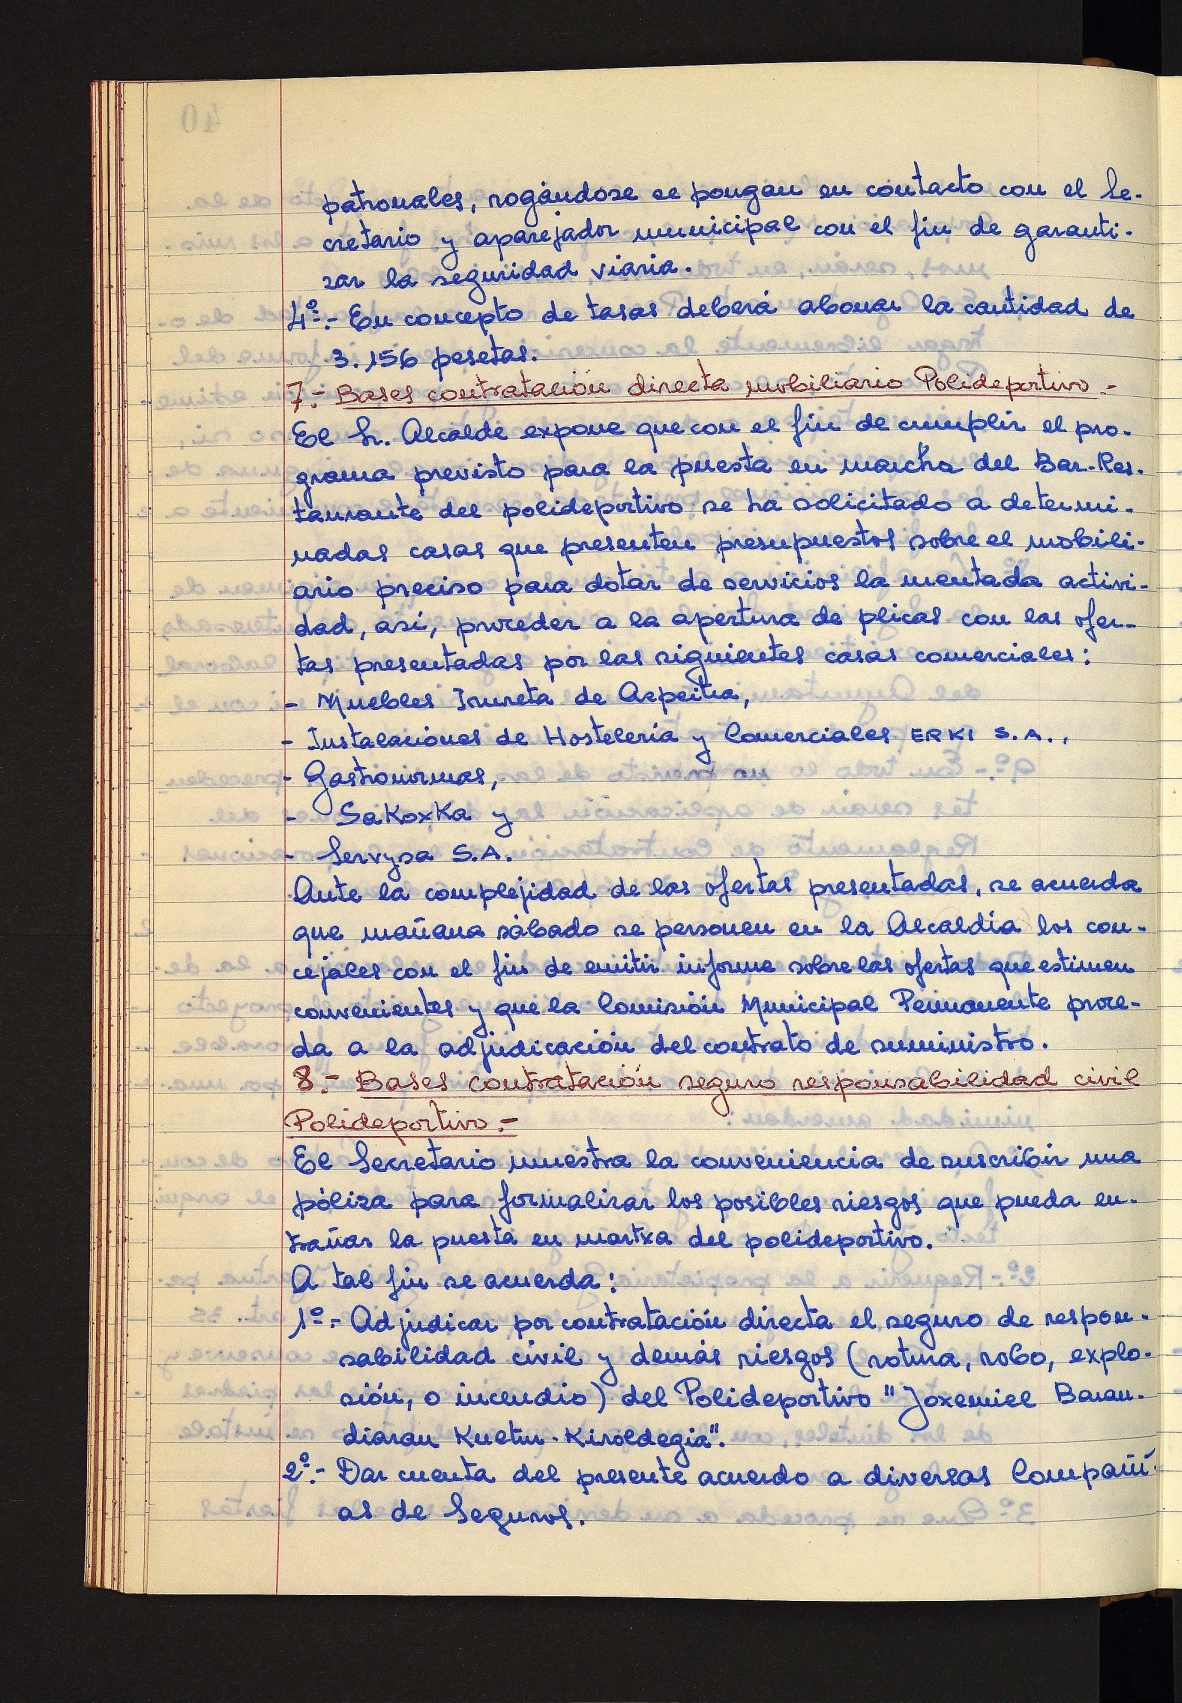 patronales, rogándose se pongan en contacto con el Se-
cretario y aparejador municipal con el fin de garanti-
zar la seguridad viaria.
4º.- En concepto de tasas deberá abonar la cantidad de
3.156 pesetas.
7.- Bases contratación directa mobiliario Polideportivo.-
El Sr. Alcalde expone que con el fin de cumplir el pro-
grama previsto para la puesta en marcha del Bar-Res-
taurante del polideportivo se ha solicitado a determi-
nadas casas que presenten presupuestos sobre el mobili-
ario preciso para dotar de servicios la mentada activi-
dad, así, proceder a la apertura de plicas con las ofer-
tas presentadas por las siguientes casas comerciales:
- Muebles Irureta de Aepeitia,
- Instalaciones de Hostelería y Comerciales ERKI S.A.,
- Gastronormas,
- Sakoxka y
- Servysa S.A.
Ante la complejidad de las ofertas presentadas, se acuerda
que mañana sábado se personen en la Alcaldía los con-
cejales con el fin de emitir informe sobre las ofertas que estimen
convenientes y que la Comisión Municipal Permanente proce-
da a la adjudicación del contrato de suministro.
8.- Bases contratación seguro responsabilidad civil
Polideportivo.-
El Secretario muestra la conveniencia de suscribir una
póliza para formalizar los posibles riesgos que pueda en-
trañar la puesta en martxa del polideportivo.
A tal fin se acuerda:
1º.- Adjudicar por contratación directa el seguro de respon-
sabilidad civil y demás riesgos (rotura, robo, explo-
sión, o incendio) del Polideportivo "Joxemiel Baran-
diaran Kultur-Kiroldegia".
2º.- Dar cuenta del presente acuerdo a diversas Compañí-
as de Seguros.